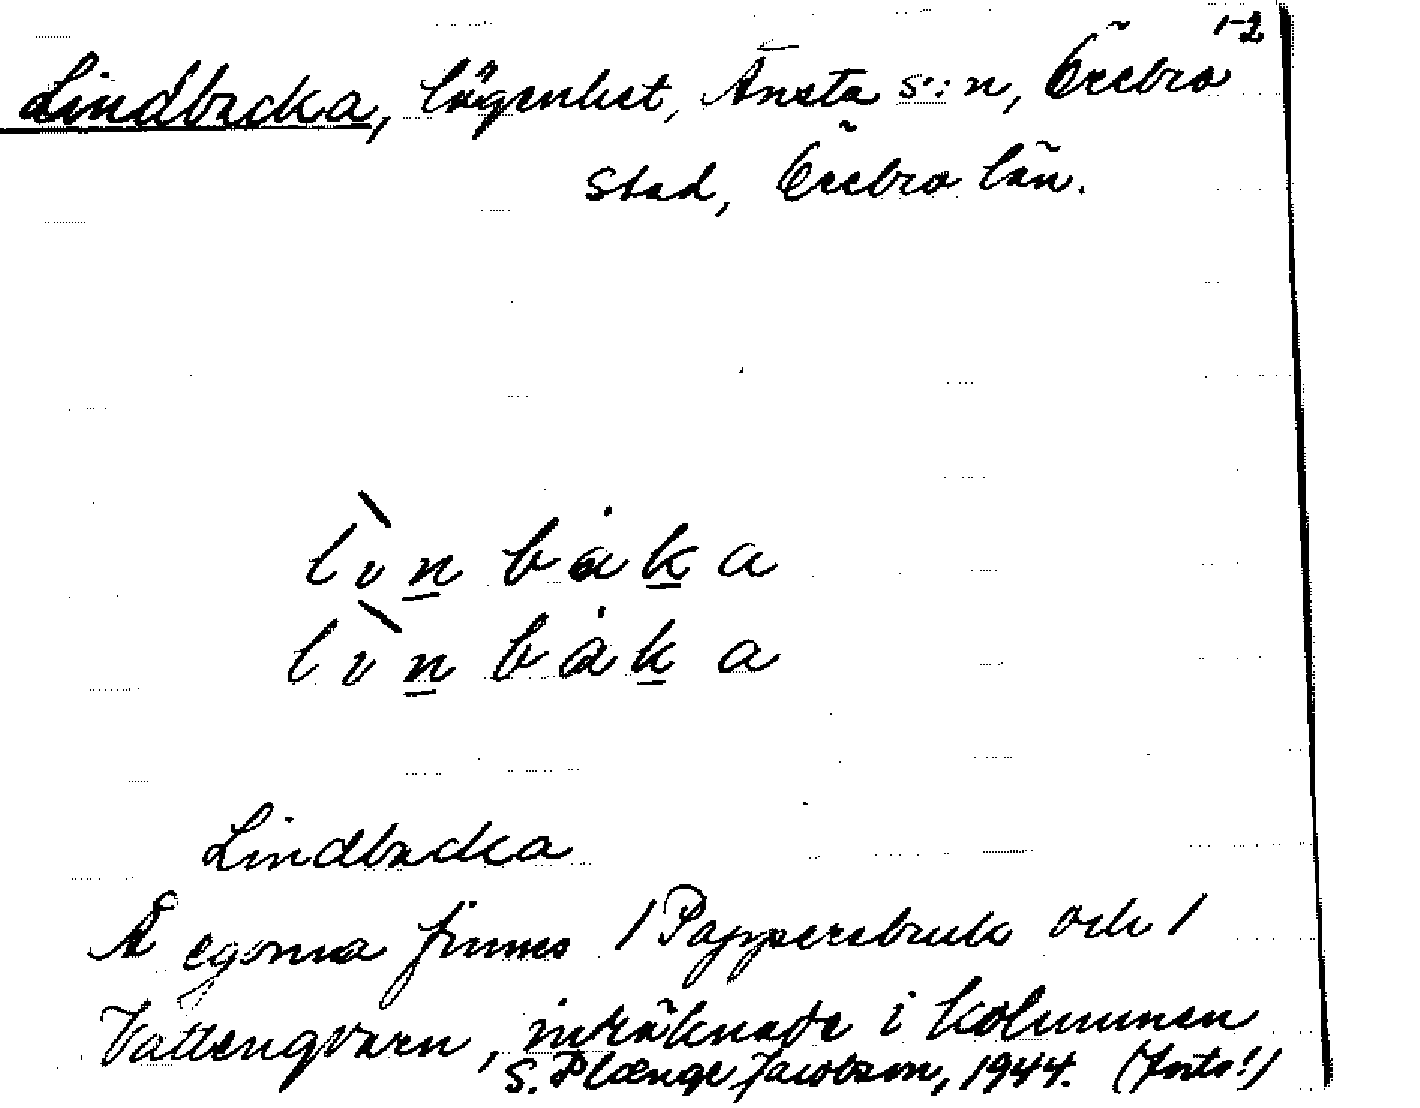 1-2
Lindbacka, lägenhet, Ånsta s:n, Örebro
stad, Örebro län.
Lindbacka
Å egorna finnes 1 Pappersbruk och 1
Vattenqvarn, inräknade i kolumnen
S. Plænge Jacobson, 1944. (forts!)